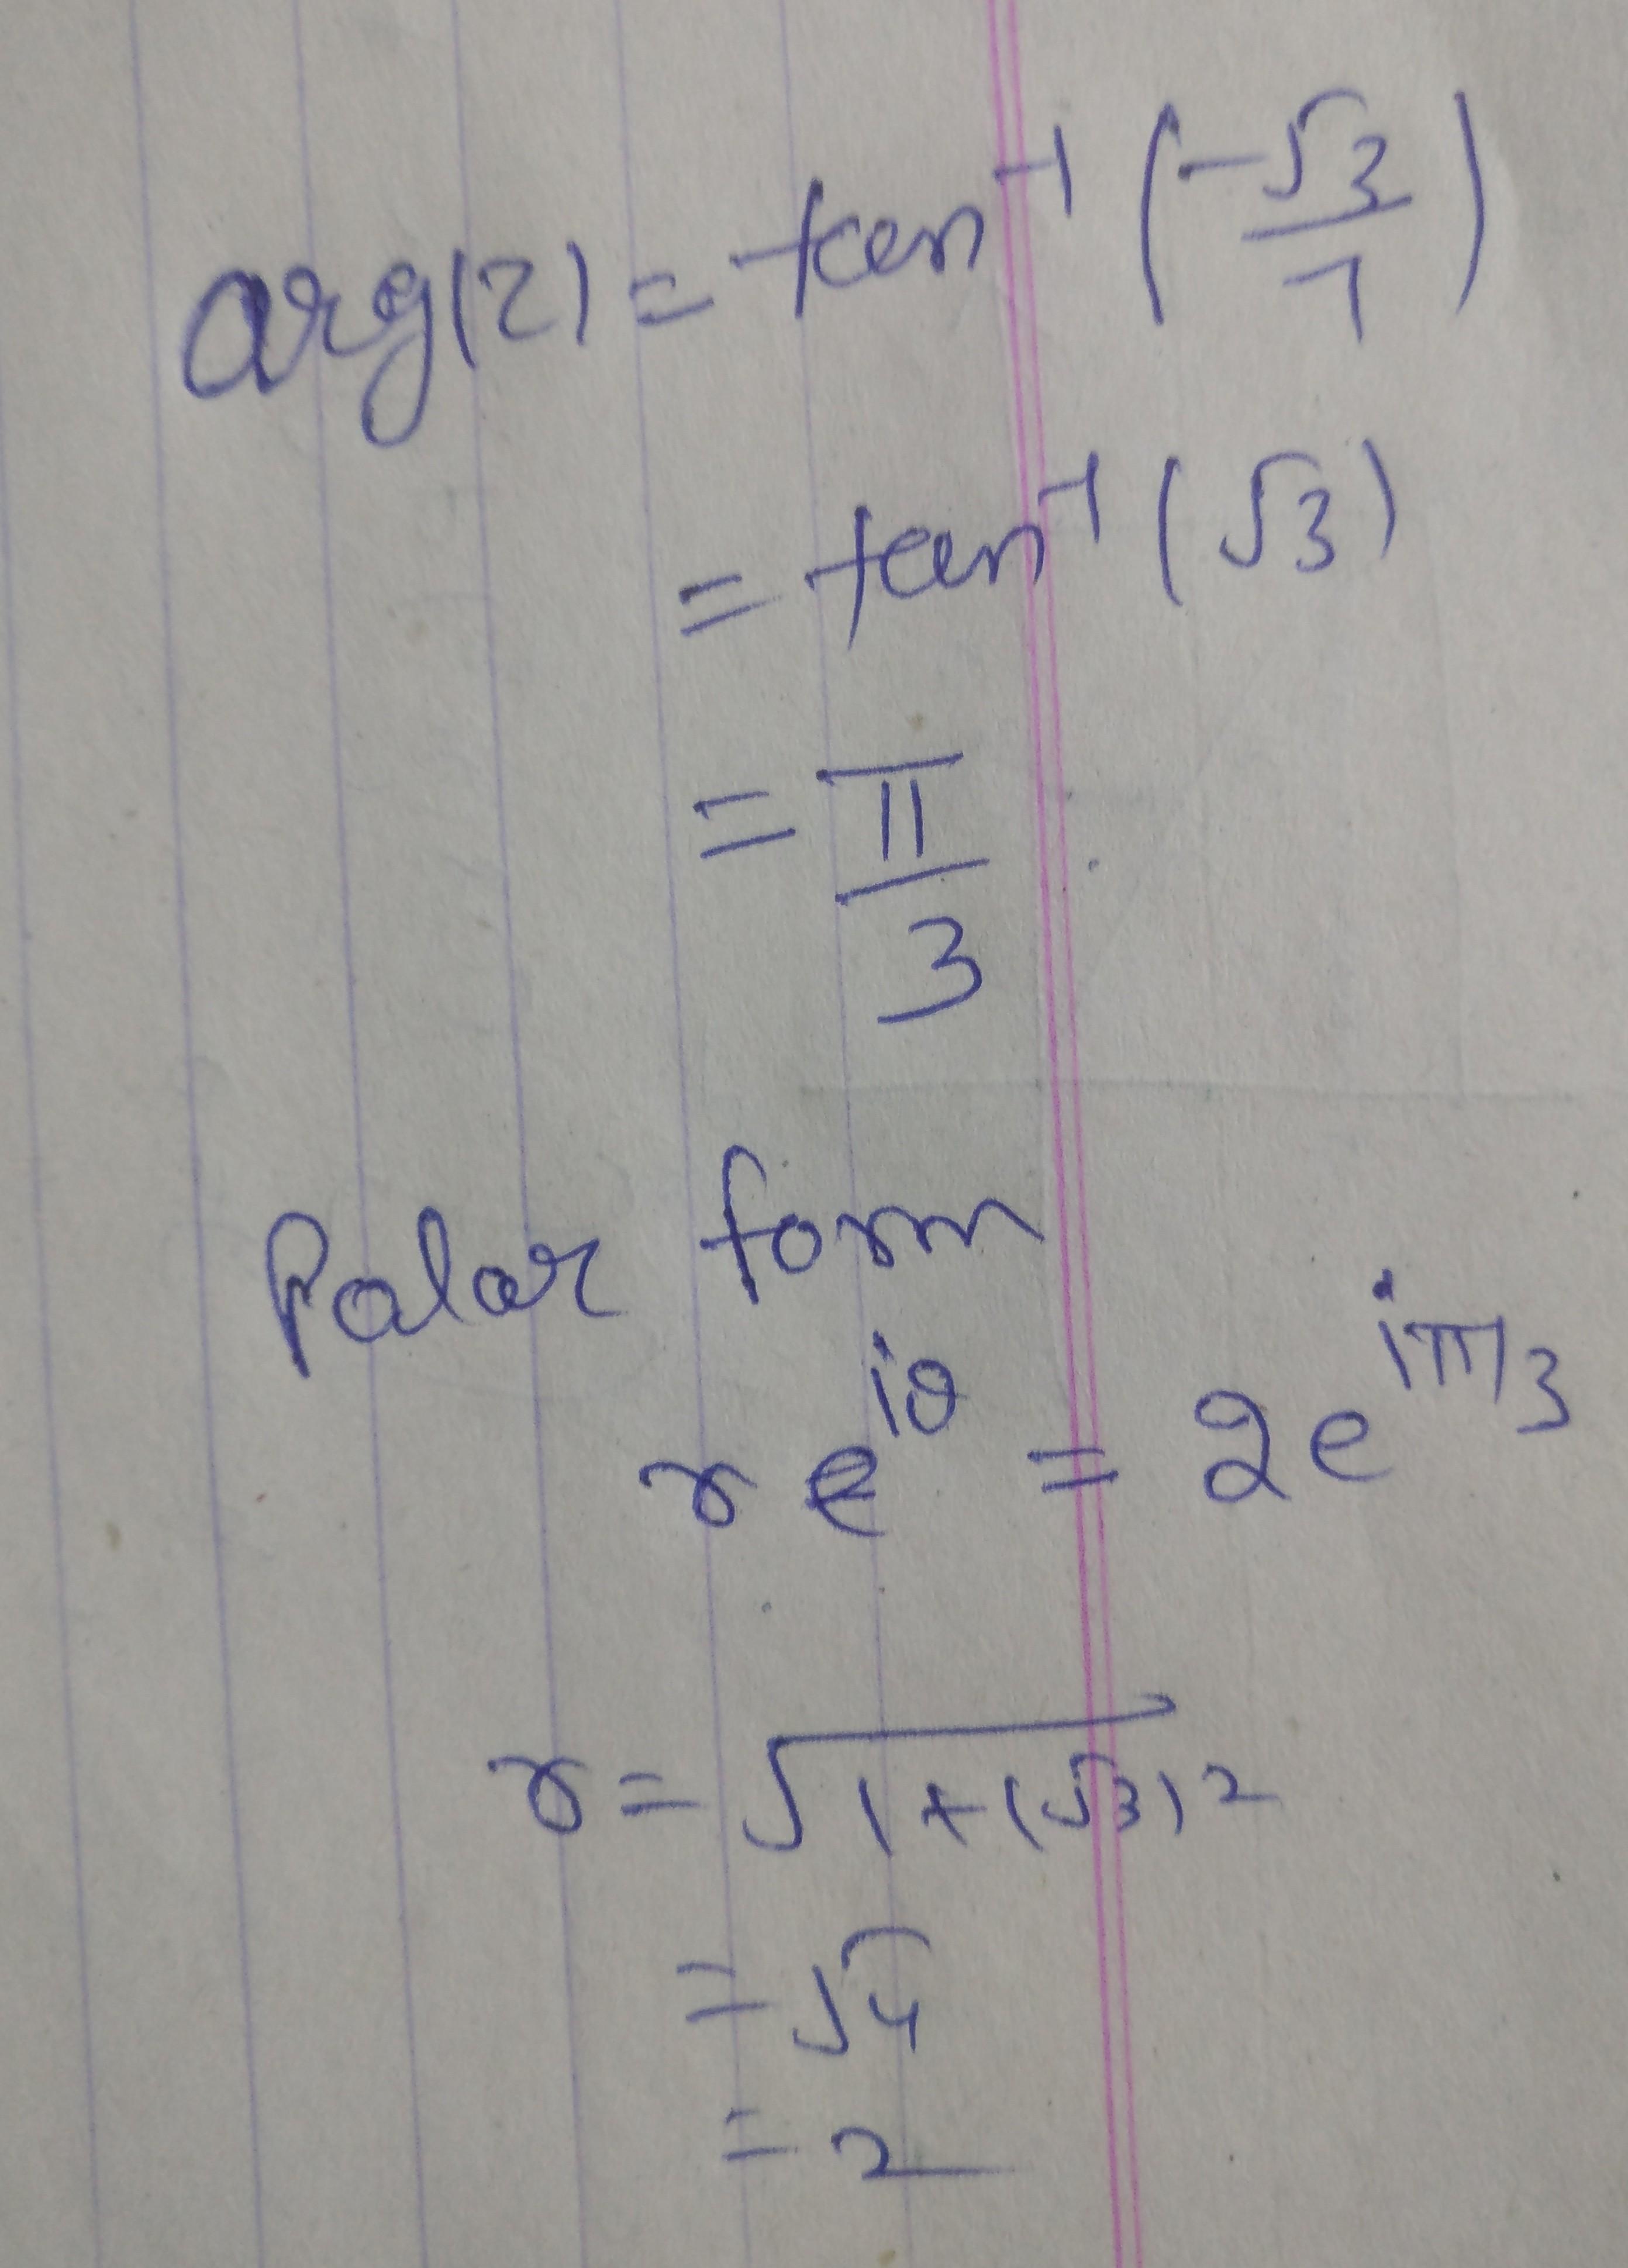 arg(z) = tan⁻¹ (-√3/-1)
= tan⁻¹ (√3)
= π/3
Polar form
r e^iθ = 2e^iπ/3
r = √1+(√3)²
= √4
= 2